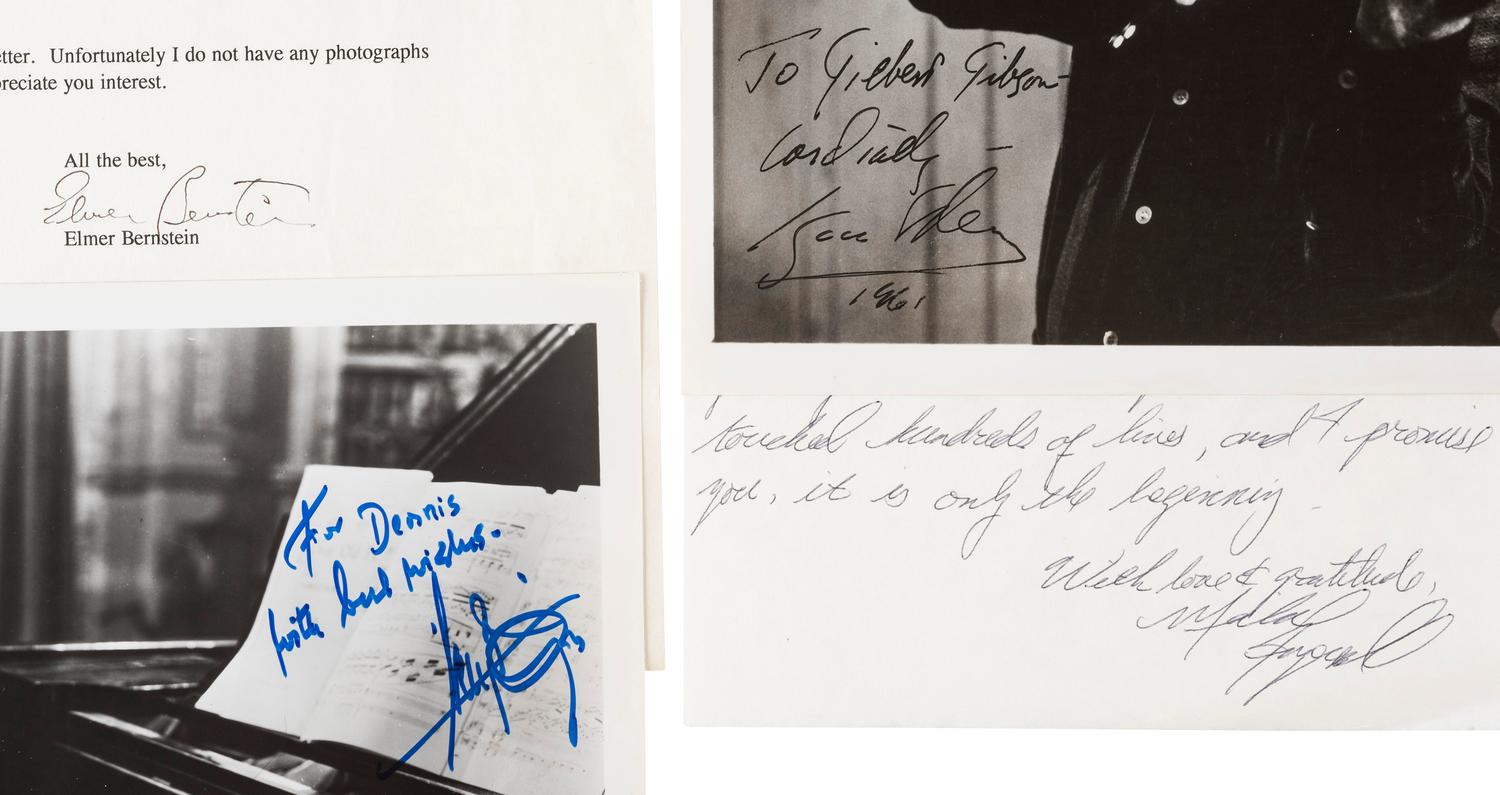 etter. Unfortunately I do not have any photographs
preciate you interest.
All the best,
Elmer Bernstein
Elmer Bernstein
For Dennis
with best wishes.
To Gilbert Gibson—
Cordially —
1961
touched hundreds of lives, and I promise
you, it is only the beginning.
With love & gratitude,